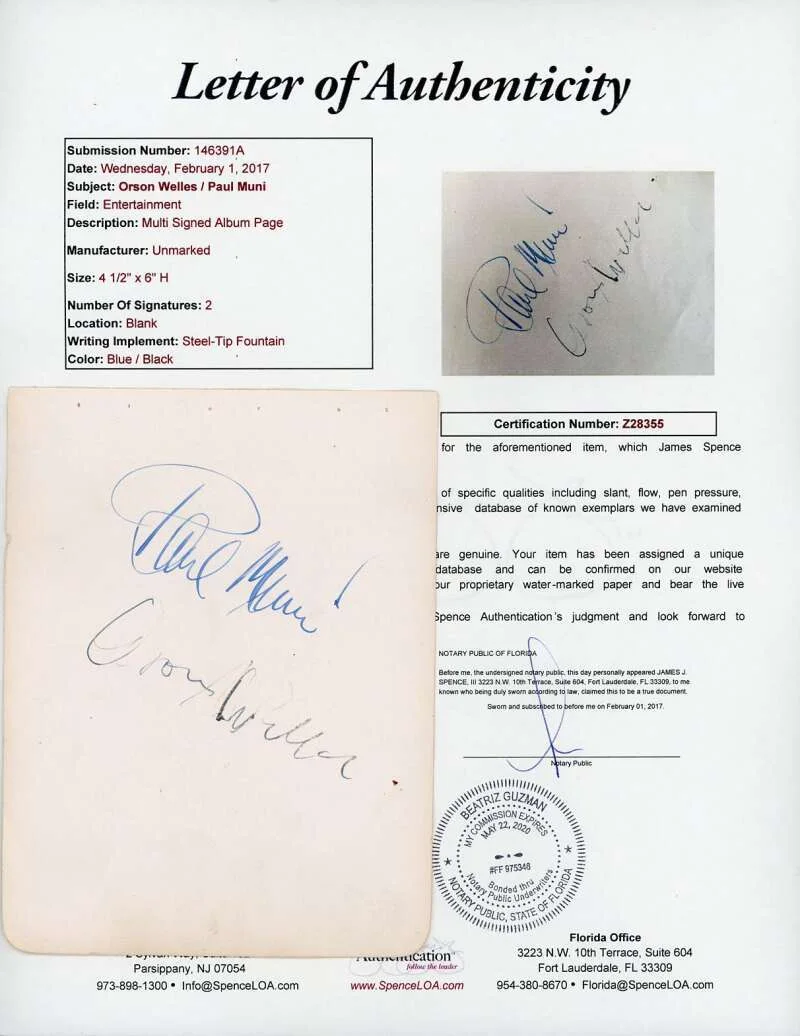 Letter of Authenticity
Submission Number: 146391A
Date: Wednesday, February 1, 2017
Subject: Orson Welles / Paul Muni
Field: Entertainment
Description: Multi Signed Album Page
Manufacturer: Unmarked
Size: 4 1/2" x 6" H
Number Of Signatures: 2
Location: Blank
Writing Implement: Steel-Tip Fountain
Color: Blue / Black
Paul Muni
Orson Welles
Certification Number: Z28355
for the aforementioned item, which James Spence
of specific qualities including slant, flow, pen pressure,
database of known exemplars we have examined
are genuine. Your item has been assigned a unique
database and can be confirmed on our website
our proprietary water-marked paper and bear the live
Spence Authentication's judgment and look forward to
Paul Muni
Orson Welles
NOTARY PUBLIC OF FLORIDA
Before me, the undersigned notary public, this day personally appeared JAMES J.
SPENCE, III 3223 N.W. 10th Terrace, Suite 604, Fort Lauderdale, FL 33309, to me
known who being duly sworn according to law, claimed this to be a true document.
Sworn and subscribed to before me on February 01, 2017.
Notary Public
BEATRIZ GUZMAN
MY COMMISSION EXPIRES
MAY 22, 2020
#FF 975348
Bonded thru
Notary Public Underwriters
NOTARY PUBLIC, STATE OF FLORIDA
Parsippany, NJ 07054
973-898-1300 • Info@SpenceLOA.com
Authentication
follow the leader
www.SpenceLOA.com
Florida Office
3223 N.W. 10th Terrace, Suite 604
Fort Lauderdale, FL 33309
954-380-8670 • Florida@SpenceLOA.com